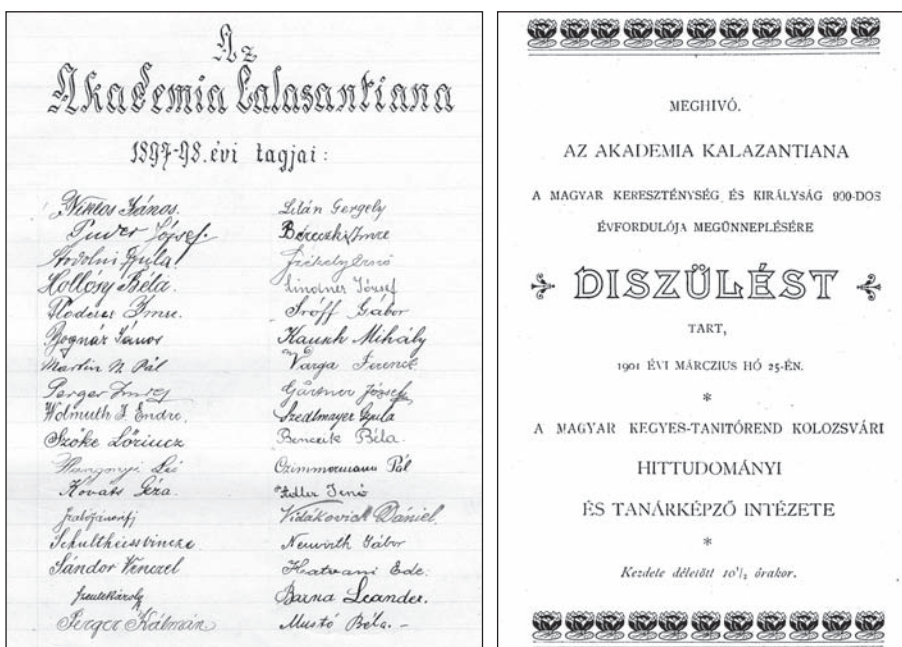 Az
Akademia Calasantiana
1897-98. évi tagjai:
Niklos János.
József.
Gyula
Hollósy Béla.
Imre.
Bognár János
Martin N. Pál
Perger Imre
Wolmuth F. Endre.
Szőke Lőrincz
Leó
Kováts Géza.
Schultheissvincze
Sándor Venczel
Szentekároly
Perger Kálmán
Litán Gergely
Béreczki Imre
Székely Ernő
Lindner József
Sróff Gábor
Mihály
Varga Ferencz
Gärtner József
Szedlmayer Gyula
Benczik Béla.
Czimmermann Pál
Adler Jenő
Vidákovich Dániel.
Neuwirth Gábor
Hatvani Ede.
Barna Leander.
Mustó Béla. –
MEGHIVÓ.
AZ AKADEMIA KALAZANTIANA
A MAGYAR KERESZTÉNYSÉG ÉS KIRÁLYSÁG 900-DOS
ÉVFORDULÓJA MEGÜNNEPLÉSÉRE
DISZÜLÉST
TART,
1901 ÉVI MÁRCZIUS HÓ 25-ÉN.
*
A MAGYAR KEGYES-TANITÓREND KOLOZSVÁRI
HITTUDOMÁNYI
ÉS TANÁRKÉPZŐ INTÉZETE
*
Kezdete délelőtt 10½ órakor.